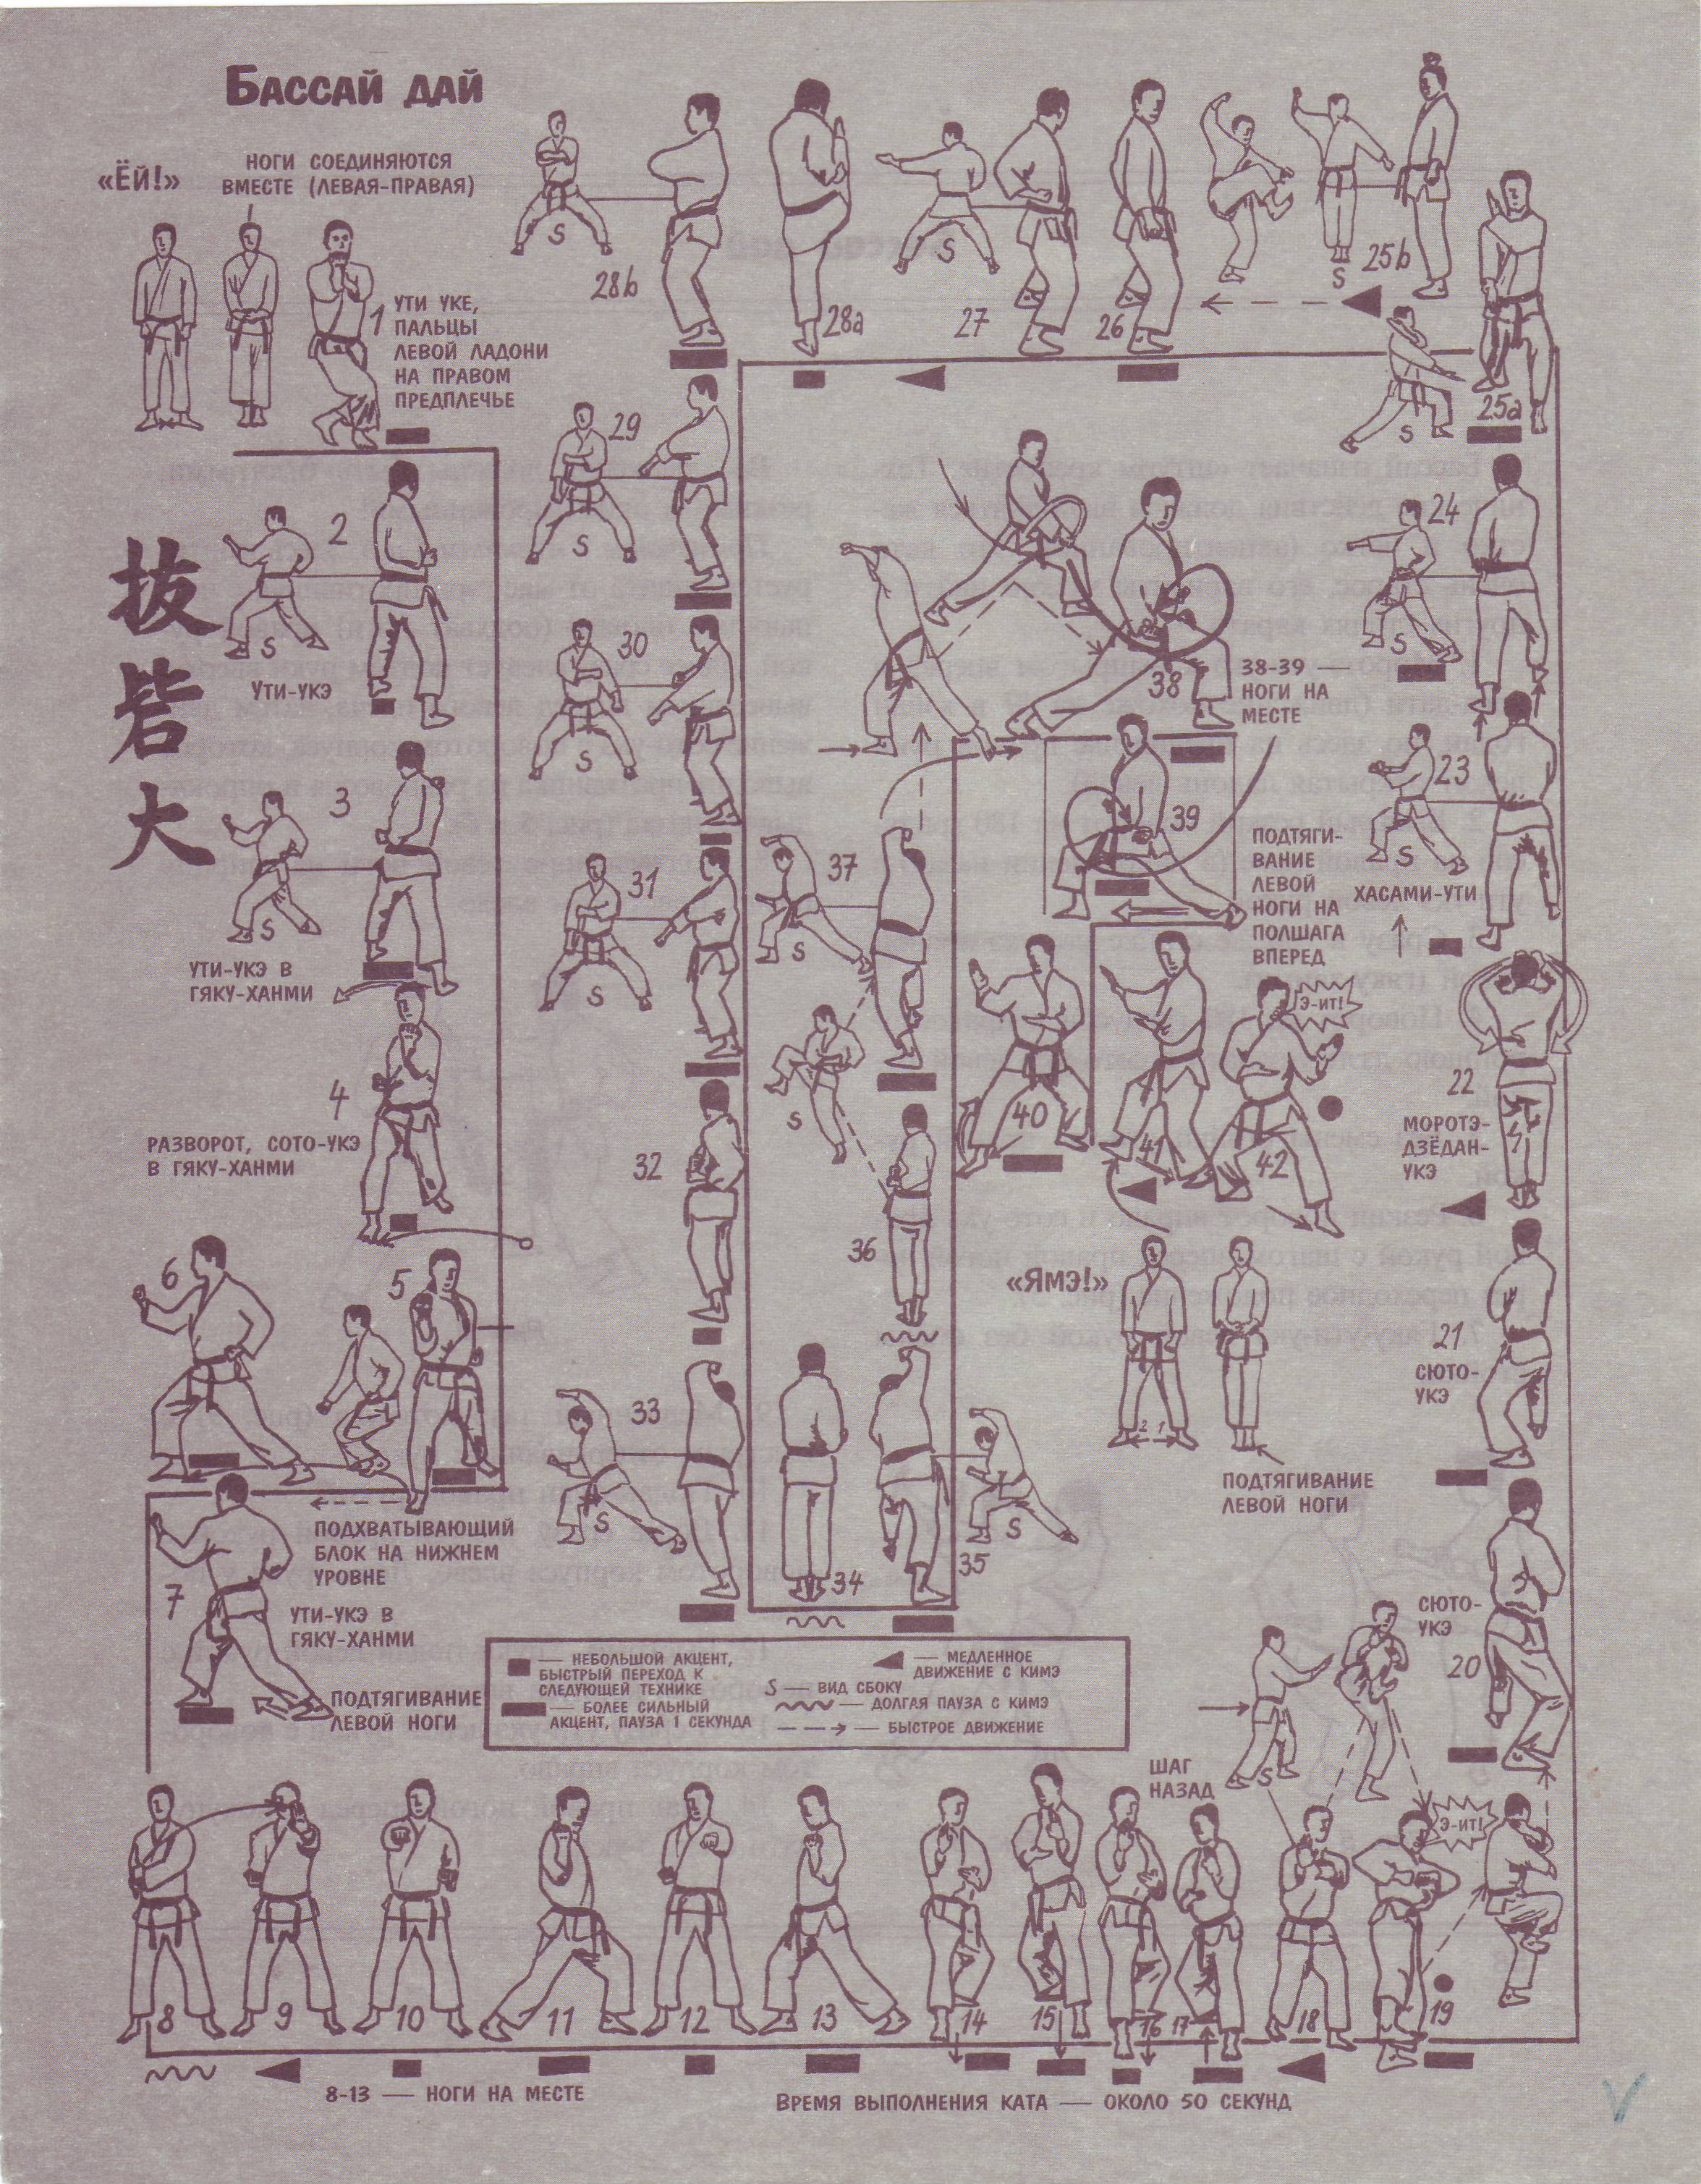 Бассай дай
«Ёй!»
НОГИ СОЕДИНЯЮТСЯ
ВМЕСТЕ (ЛЕВАЯ-ПРАВАЯ)
1
УТИ УКЕ,
ПАЛЬЦЫ
ЛЕВОЙ ЛАДОНИ
НА ПРАВОМ
ПРЕДПЛЕЧЬЕ
抜
砦
大
2
S
УТИ-УКЭ
3
S
УТИ-УКЭ В
ГЯКУ-ХАНМИ
4
РАЗВОРОТ, СОТО-УКЭ
В ГЯКУ-ХАНМИ
5
6
ПОДХВАТЫВАЮЩИЙ
БЛОК НА НИЖНЕМ
УРОВНЕ
7
УТИ-УКЭ В
ГЯКУ-ХАНМИ
ПОДТЯГИВАНИЕ
ЛЕВОЙ НОГИ
8
9
10
11
12
13
14
15
16
17
18
19
8-13 — НОГИ НА МЕСТЕ
ВРЕМЯ ВЫПОЛНЕНИЯ КАТА — ОКОЛО 50 СЕКУНД
ШАГ
НАЗАД
S
Э-ИТ!
СЮТО-
УКЭ
20
21
СЮТО-
УКЭ
22
МОРОТЭ-
ДЗЁДАН-
УКЭ
23
S
ХАСАМИ-УТИ
24
S
25а
S
25b
S
26
27
S
28а
28b
S
29
S
30
S
31
S
32
33
S
34
35
S
36
37
S
S
38
38-39 —
НОГИ НА
МЕСТЕ
39
ПОДТЯГИ-
ВАНИЕ
ЛЕВОЙ
НОГИ НА
ПОЛШАГА
ВПЕРЕД
40
41
42
Э-ИТ!
«Ямэ!»
2 1
ПОДТЯГИВАНИЕ
ЛЕВОЙ НОГИ
— НЕБОЛЬШОЙ АКЦЕНТ,
БЫСТРЫЙ ПЕРЕХОД К
СЛЕДУЮЩЕЙ ТЕХНИКЕ
— БОЛЕЕ СИЛЬНЫЙ
АКЦЕНТ, ПАУЗА 1 СЕКУНДА
— МЕДЛЕННОЕ
ДВИЖЕНИЕ С КИМЭ
S — ВИД СБОКУ
— ДОЛГАЯ ПАУЗА С КИМЭ
— БЫСТРОЕ ДВИЖЕНИЕ